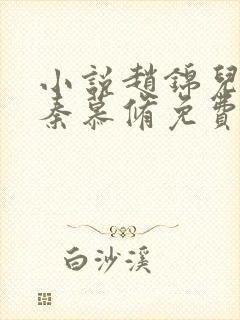 小說趙錦兒
秦慕脩免費
白沙溪